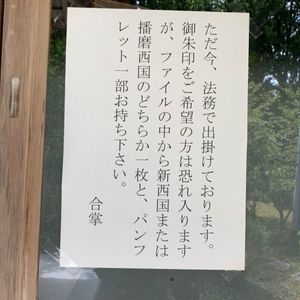 ただ今、法務で出掛けております。
御朱印をご希望の方は恐れ入ります
が、ファイルの中から新西国または
播磨西国のどちらか一枚と、パンフ
レット一部お持ち下さい。
合掌